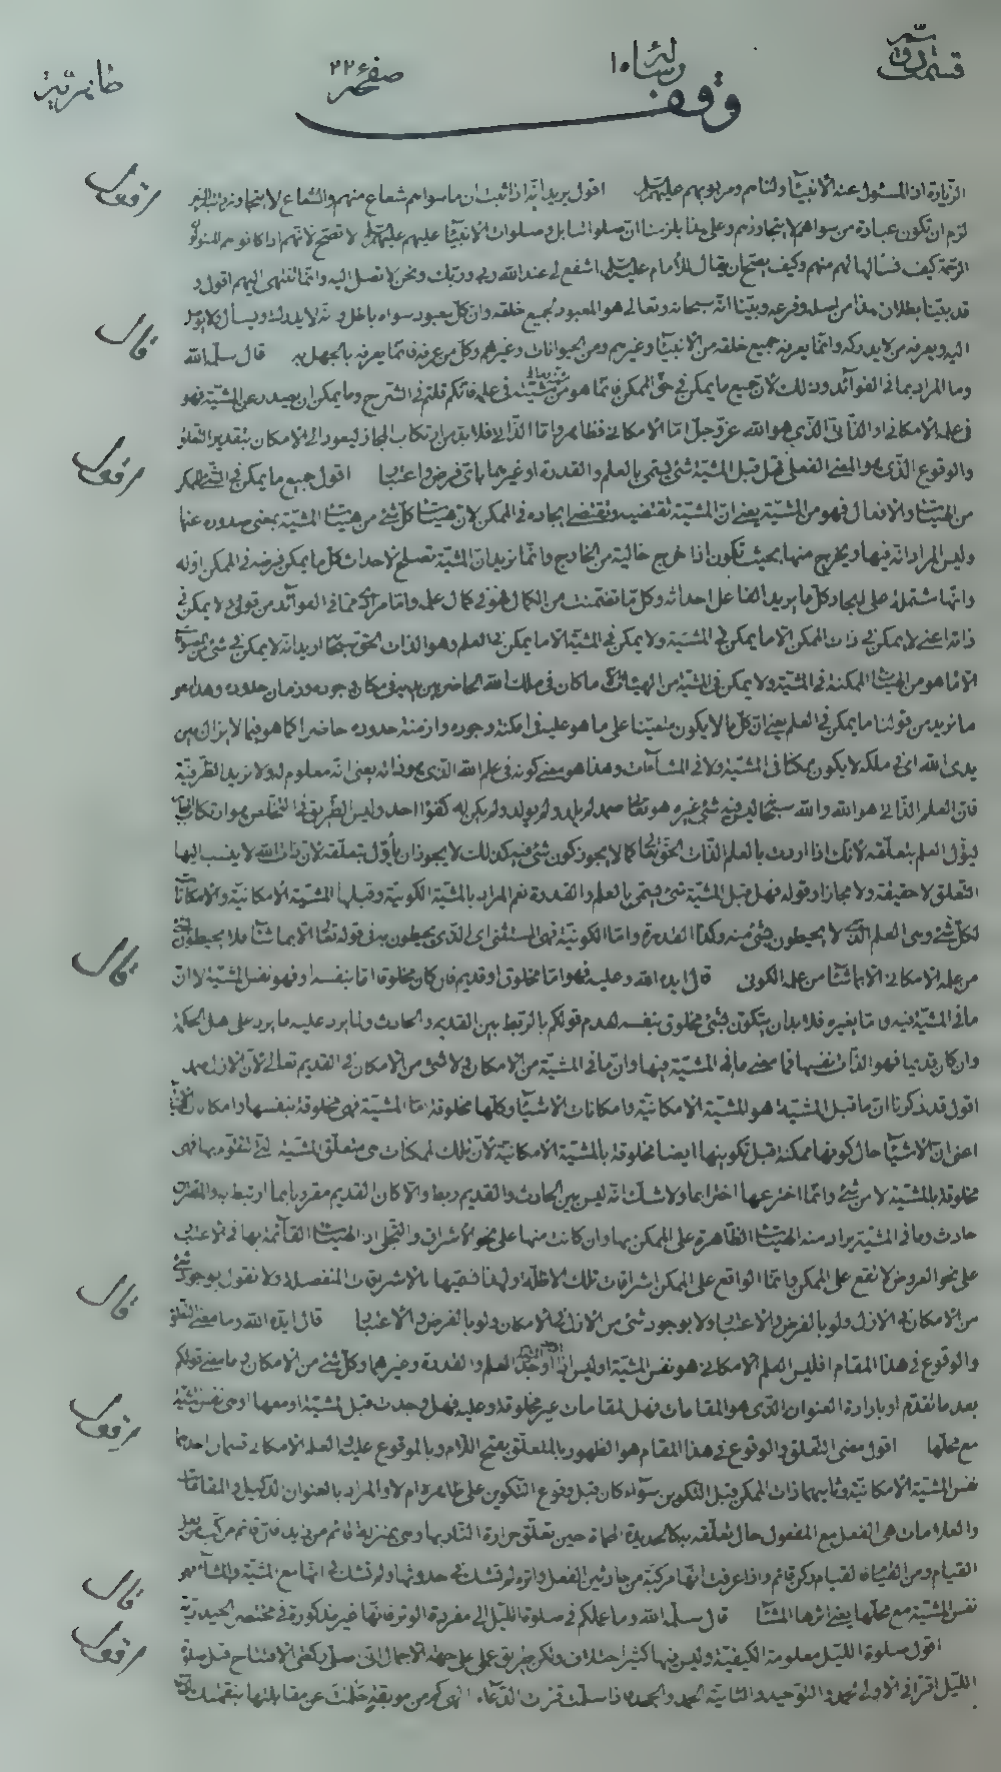 رسالة ١٥
صفحه ٢٢
وقف
الزيادة ان المسئول عنه الأنبياء ولنا هم ومربوبهم عليهم السلم اقول يريد انه اذا ثبت ان ما سواهم شعاع منهم والشعاع لا يتجاوز
لزم ان تكون عبادة من سواهم لا يتجاوزهم وعلى هذا يلزمنا ان صلواتنا بل وصلوات الأنبياء عليهم السلم لا تصح لانهم اذا كانوا هم
الرحمة كيف نسألها لهم منهم وكيف يصح ان يقال للامام عليه السلم اشفع لى عند الله ربى وربك ونحن لا نصل اليه وانما ننتهى اليهم اقول و
قد بينا بطلان هذا من اصله وفرعه وبينا انه سبحانه وتعالى هو المعبود لجميع خلقه وان كل معبود سواه باطل وانه لا يدرك ويسأل
اليه ويعرفه من لا يدركه وانما يعرفه جميع خلقه من الأنبياء وغيرهم ومن الحيوانات وغيرهم وكل من عرفه فانما يعرفه بالجهل به قال سلمه الله
وما المراد بما فى الفوائد وذلك لان جميع ما يمكن فى حق الممكن فانما هو من مشيته فى علمه فانكم قلتم فى الشرح وما يمكن ان يصدر عن المشية فهو
فى علمه الامكانى او الذاتى الذى هو الله عز وجل اما الامكانى فظاهر واما الذاتى فلا بد من ارتكاب المجاز ليعود الى الامكان بتقدير التعلق
والوقوع الذى هو المعنى الفعلى فهل قبل المشية شئ يسمى بالعلم والقدرة او غيرهما باى فرض واعتبار اقول جميع ما يمكن فى
من الهيئات والافعال فهو من المشية يعنى ان المشية تقتضيه وتقتضى ايجاده فى الممكن لان هيئات كل شئ من هيئات المشية بمعنى صدوره عنها
وليس المراد انه فيها ويخرج منها بحيث تكون اذا خرج خالية من الخارج وانما نريد ان المشية تصلح لاحداث كل ما يمكن فرضه فى الممكن اوله
وانها مشتملة على ايجاد كل ما يريد الفاعل احداثه وكل ما تضمنت من الكمال فهو فى كمال علمه واما مرادنا فى الفوائد من قولى ولا يمكن فى
ذاته اعنى لا يمكن فى ذات الممكن الا ما يمكن فى المشية ولا يمكن فى المشية الا ما يمكن فى العلم وهو الذات الحق سبحانه اريد انه لا يمكن فى شئ من
الا ما هو من الهيئات الممكنة فى المشية ولا يمكن فى المشية من الهيئات الا ما كان فى ملك الله الحاضر بين يديه فى مكان وجوده وزمان حدوده وهذا هو
ما نريد من قولنا ما يمكن فى العلم يعنى ان كل ما لا يكون متعينا على ما هو عليه فى امكنة وجوده وازمنة حدوده حاضرا كما هو فيما لا يزال بين
يدى الله اى فى ملكه لا يكون ممكنا فى المشية ولا فى المشاءات وهذا هو معنى كونه فى علم الله الذى هو ذاته بمعنى انه معلوم له ولا نريد الظرفية
فان العلم الذاتى هو الله والله سبحانه ليس فيه شئ غيره هو تعالى صمد لم يلد ولم يولد ولم يكن له كفوا احد وليس الطريق فى التخلص هو ارتكاب
ليؤل العلم بتعلقه لانك اذا اردت بالعلم الذات الحق تعالى كما لا يجوز كون شئ فيه كذلك لا يجوز ان يأول بتعلقه لان ذات الله لا ينسب اليها
التعلق لا حقيقة ولا مجازا وقوله فهل قبل المشية شئ يسمى بالعلم والقدرة نعم المراد بالمشية الكونية وقبلها المشية الامكانية والامكانات
لكل شئ وهى العلم الذى لا يحيطون بشئ منه وكذا القدرة واما الكونية فهى المستثنى اى الذى يحيطون به فى قوله تعالى الا بما شاء فلا يحيطون
من علمه الامكانى الا بما شاء من علمه الكونى قال ايده الله وعليه فهو اما مخلوق او قديم فان كان مخلوقا اما بنفسه او فهو نفس المشية لا ان
ما فى المشية فيه واما بغيره فلا بد ان يتكون بشئ مخلوق بنفسه لعدم قولكم بالربط بين القديم والحادث ولما يرد عليه ما يرد على اهل الحكمة
وان كان قديما فهو الذات نفسها فما معنى ما فى المشية فيها وان ما فى المشية من الامكان ولا شئ من الامكان فى القديم تعالى لان الازل صمد
اقول قد ذكرنا ان ما قبل المشية هو المشية الامكانية وامكانات الاشياء وكلها مخلوقة اما المشية فهى مخلوقة بنفسها وامكانات
اعنى ان الاشياء حال كونها ممكنة قبل تكوينها ايضا مخلوقة بالمشية الامكانية لان تلك الممكنات هى متعلق المشية التى تتقوم بها فهى
مخلوقة بالمشية لا من شئ وانما اخترعها اختراعا ولا شك انه ليس بين الحادث والقديم ربط والا كان القديم مقرونا بما ارتبط به والمقترن
حادث وما فى المشية يراد منه الهيئات الظاهرة على الممكن بها وان كانت منها على نحو الاشراق والتجلى اذ الهيئات القائمة بها فى الاعتبار
على نحو العروض لا تقع على الممكن وانما الواقع على الممكن اشراقات تلك الاظلة ولهذا نسميها بالاشراقات المنفصلة ولا نقول بوجود شئ
من الامكان فى الازل ولو بالفرض والاعتبار ولا بوجود شئ من الازل فى الامكان ولو بالفرض والاعتبار قال ايده الله وما معنى التعلق
والوقوع فى هذا المقام افليس العلم الامكانى هو نفس المشية اوليس اذا اوجد العلم والقدرة وغيرهما وكل شئ من الامكان وما معنى قولكم
بعد ما تقدم او بارادة العنوان الذى هو المقامات فهل المقامات غير مخلوقة وعليه فهل وجدت قبل المشية او معها او هى نفس المشية
مع محلها اقول معنى التعلق والوقوع فى هذا المقام هو الظهور بالمتعلق بفتح اللام وبالموقوع عليه والعلم الامكانى قسمان احدهما
نفس المشية الامكانية وثانيهما ذات الممكن قبل التكوين سواء كان قبل وقوع التكوين على ظاهره ام لا والمراد بالعنوان الدليل والمقامات
والعلامات هى الفعل مع المفعول حال تعلقه به كالحديدة المحماة حين تعلق حرارة النار بها وهى بمنزلة قائم من زيد فان قائم مركب من فعل
القيام ومن القيام فالقيام ركن قائم واذا عرفت انها مركبة من حادثين الفعل واثره لم تشك فى حدوثها ولم تشك فى انها مع المشية والمشاء
نفس المشية مع محلها يعنى اثرها المشاء قال سلمه الله وما عملكم فى صلوة الليل الى مفردة الوتر فانها غير مذكورة فى مختصر الحيدرية
اقول صلوة الليل معلومة الكيفية وليس فيها كثير اختلاف ولكن طريق عملى على جهة الاجمال انى اصلى ركعتى الافتتاح قبل صلوة
الليل اقرأ فى الاولى الحمد والتوحيد والثانية الحمد والجحد فاذا سلمت قرأت الدعاء الهى كم من موبقة حلمت عن مقابلتها بنقمتك
اقول
قال
اقول
قال
قال
اقول
قال
اقول